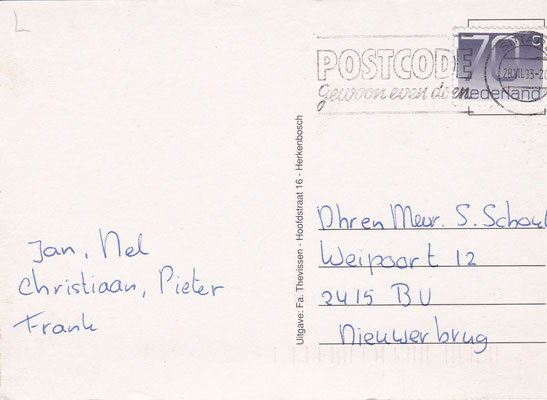 L
POSTCODE
gewoon even doen.
70 c
28.VII.93
nederland
Uitgave: Fa. Thevissen - Hoofdstraat 16 - Herkenbosch
Jan, Nel
Christiaan, Pieter
Frank
Dhren Mevr. S. Schoul
Weipoort 12
2415 BU
Nieuwerbrug